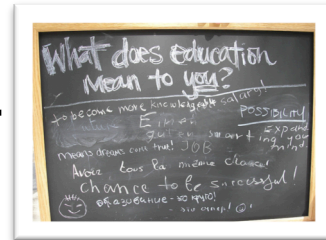 What does education
mean to you?
to become more knowledgable
salary!
POSSIBILITY
Expand
ing your
mind
means dreams come true! JOB
Avoir tous la même chance!
chance to be successful!
образивание - это круто!
это супер!